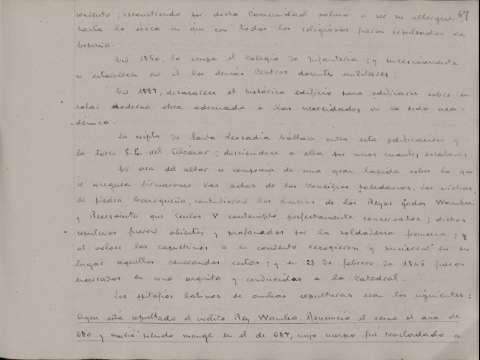 67
convento; reconstruido por dicha Comunidad volvió a ser su albergue,
hasta la época en que con todos los religiosos fueron expulsados en
España.
En 1850, lo ocupa el Colegio de Infantería; y sucesivamente
se establecen en él los demás Centros docentes militares.
En 1887, desaparece el histórico edificio para edificarse sobre su
solar moderna obra adecuada a las necesidades de su vida aca-
démica.
La cripta de Santa Leocadia hállase entre esta edificación y
la torre S.E. del Alcázar; desciéndese a ella por unos cuantos escalones.
El ara del altar se compone de una gran lápida sobre la que
se asegura firmaron las actas de los Concilios toledanos. Los nichos
de piedra berroqueña, contuvieron los huesos de los Reyes godos Wamba
y Recesvinto que Carlos V contempló perfectamente conservados; dichos
sepulcros fueron abiertos y profanados por la soldadesca francesa; y
al volver los capuchinos a su convento recogieron y pusieron en su
lugar aquellos venerandos restos; y en 23 de febrero de 1845 fueron
encerrados en una arquita y conducidos a la Catedral.
Los epitafios latinos de ambas sepulturas eran los siguientes:
Aquí está sepultado el ínclito Rey Wamba. Renunció el reino el año de
680 y murió siendo monge en el de 687, cuyo cuerpo fué trasladado a